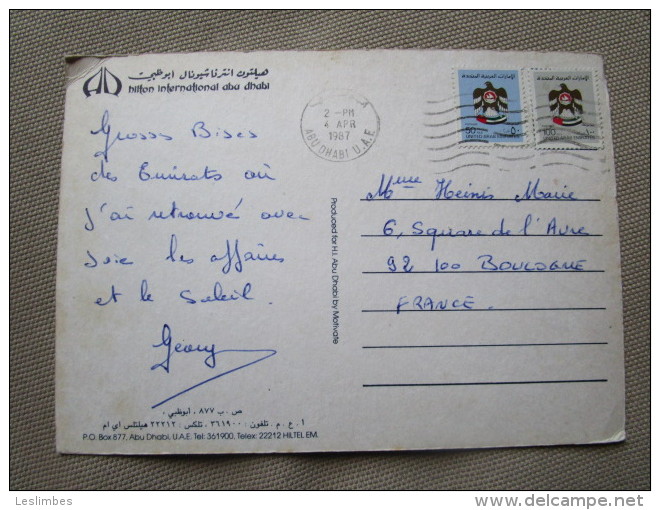 هيلتون انترناشيونال أبوظبي
hilton international abu dhabi
Grosses Bises
des Emirats où
j'ai retrouvé avec
Joie les affaires
et le Soleil.
Geory
ص . ب ٨٧٧ ، أبوظبي ،
أ . ع . م . تلفون : ٣٦١٩٠٠ ، تلكس : ٢٢٢١٢ هيلتلس اي ام
P.O. Box 877, Abu Dhabi, U.A.E. Tel: 361900, Telex: 22212 HILTEL EM.
Produced for H.I. Abu Dhabi by Motivate
2 - PM
4 APR
1987
ABU DHABI U.A.E
الإمارات العربية المتحدة
50
٥٠
UNITED ARAB EMIRATES
الإمارات العربية المتحدة
100
UNITED ARAB EMIRATES
Mme Heinis Marie
6, Square de l'Avre
92 100 BOULOGNE
FRANCE.
Leslimbes
delcampe.net